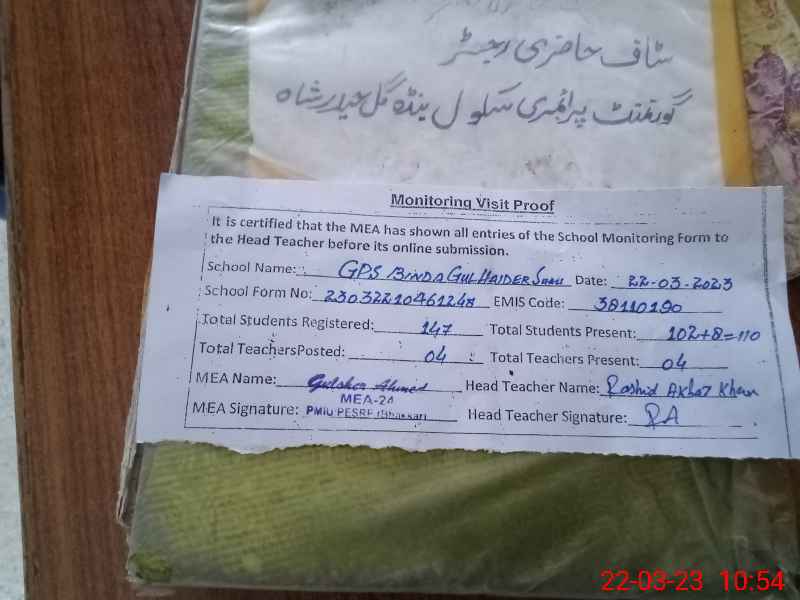 سٹاف حاضری رجسٹر
گورنمنٹ پرائمری سکول بنڈہ گل حیدر شاہ
Monitoring Visit Proof
It is certified that the MEA has shown all entries of the School Monitoring Form to
the Head Teacher before its online submission.
School Name: GPS BINDA GUL HAIDER SHAH Date: 22-03-2023
School Form No: 23032210461248 EMIS Code: 38110190
Total Students Registered: 147 Total Students Present: 102+8=110
Total TeachersPosted: 04 Total Teachers Present: 04
MEA Name: Gulsher Ahmed Head Teacher Name: Rashid Akhaz Khan
MEA-24
MEA Signature: PMIU PESRP (Bhakkar) Head Teacher Signature: RA
22-03-23 10:54